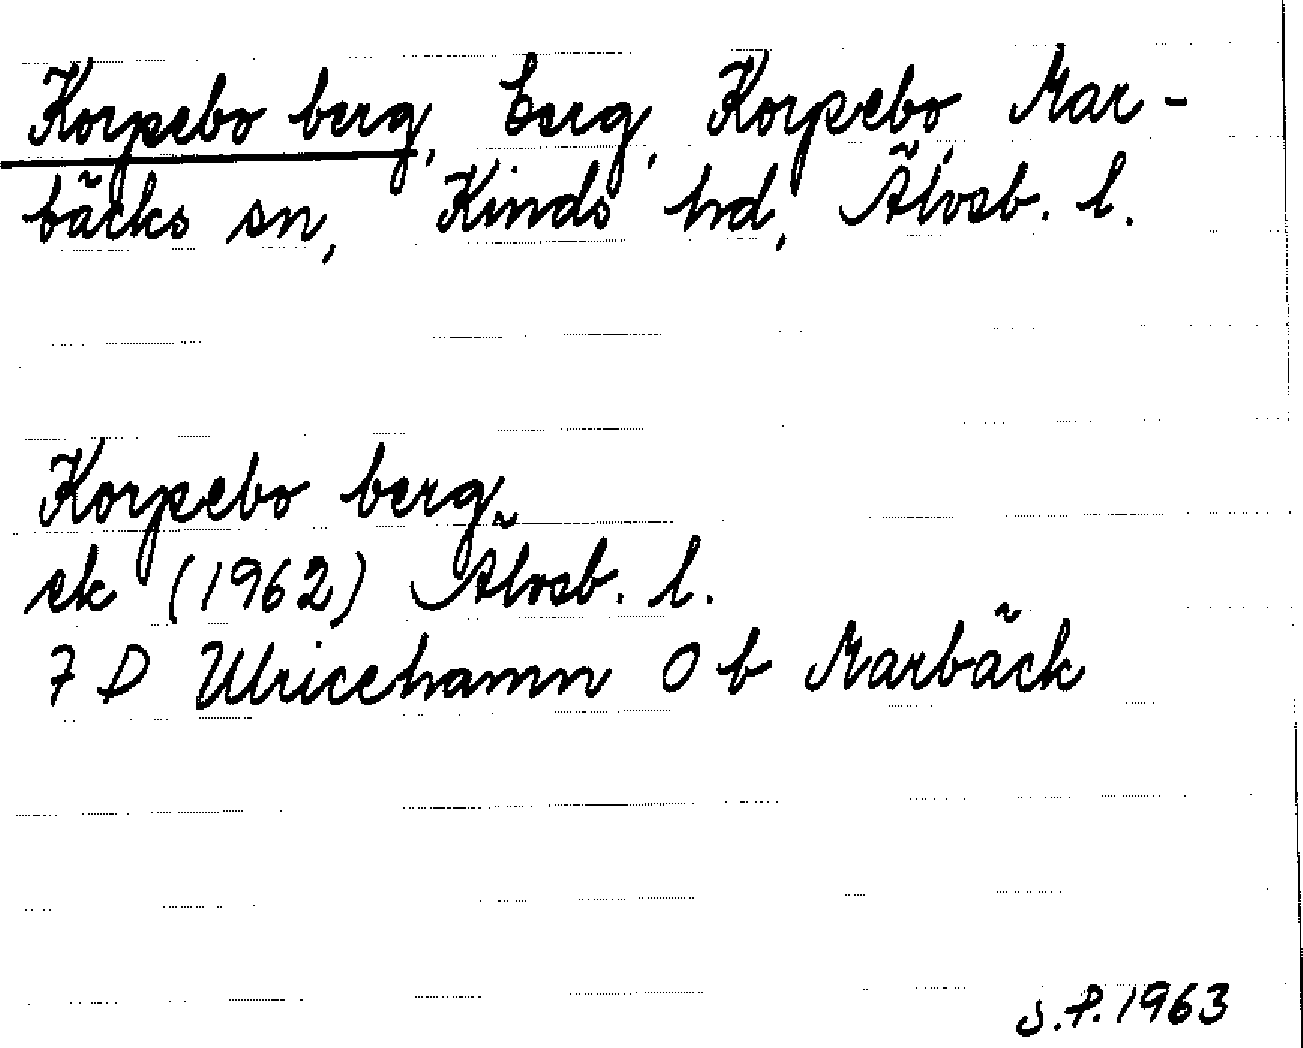 Korpebo berg, berg, Korpebo, Mar-
bäcks sn, Kinds hd, Älvsb. l.
Korpebo berg
ek (1962) Älvsb. l.
7 D Ulricehamn O b Marbäck
S.P. 1963